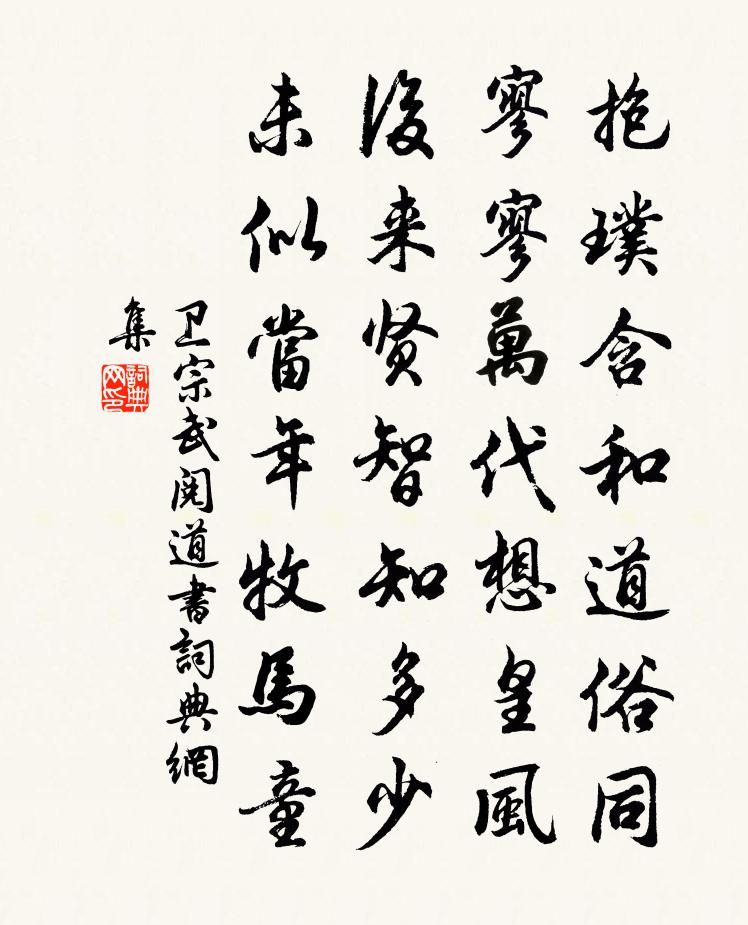 抱璞含和道俗同
寥寥萬代想皇風
後来贤智知多少
未似當年牧馬童
卫宗武阅道書詞典網
集
詞典网印